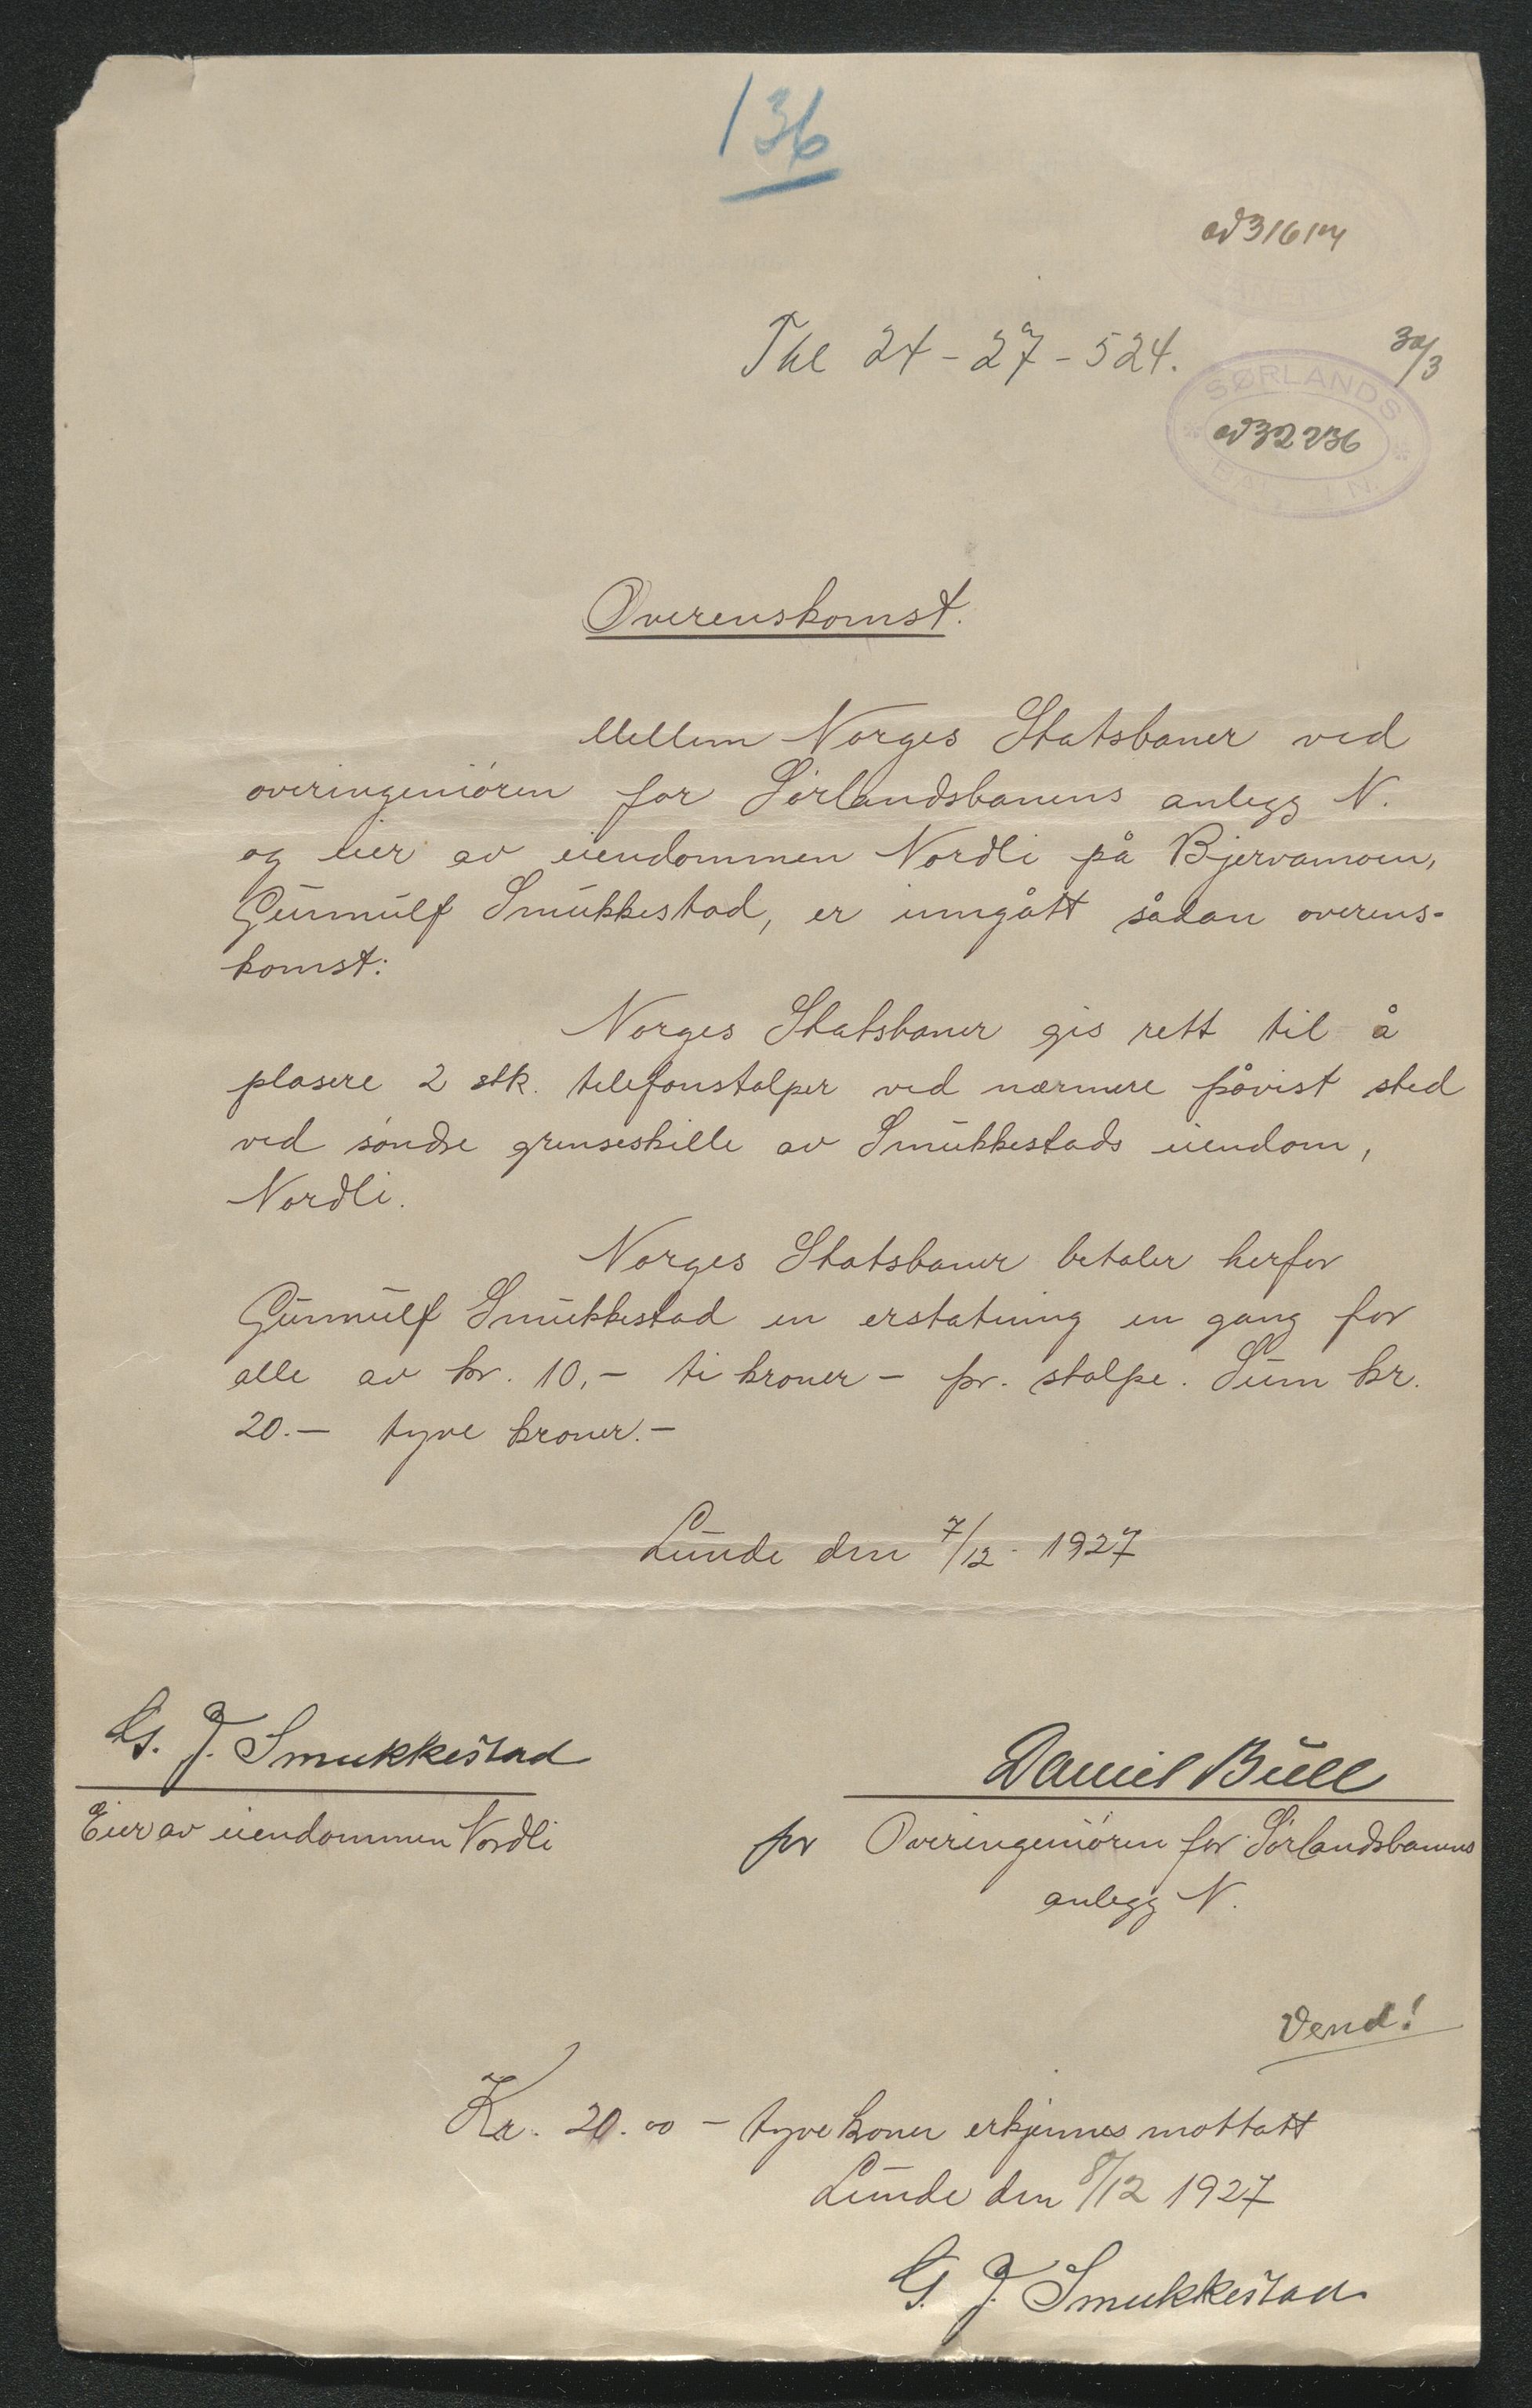 136
ad 31614
Tkl 24-27-524.
30/3
SØRLANDS
ad 32236
N.
Overenskomst.
Mellem Norges Statsbaner ved
overingeniören for Sörlandsbanens anlegg N.
og eier av eiendommen Nordli på Bjervamoen,
Gunnulf Smukkestad, er inngått sådan overens-
komst:
Norges Statsbaner gis rett til å
plasere 2 stk. telefonstolper ved nærmere påvist sted
ved söndre grenseskille av Smukkestads eiendom,
Nordli.
Norges Statsbaner betaler herfor
Gunnulf Smukkestad en erstatning en gang for
alle av kr. 10,- ti kroner - pr. stolpe. Sum kr.
20.- tyve kroner.-
Lunde den 7/12 - 1927
G. J. Smukkestad
Daniel Bull
Eier av eiendommen Nordli
for Overingeniören for Sörlandsbanens
anlegg N.
Vend!
Kr. 20.00 - tyve kroner erkjennes mottatt
Lunde den 8/12 1927
G. J. Smukkestad